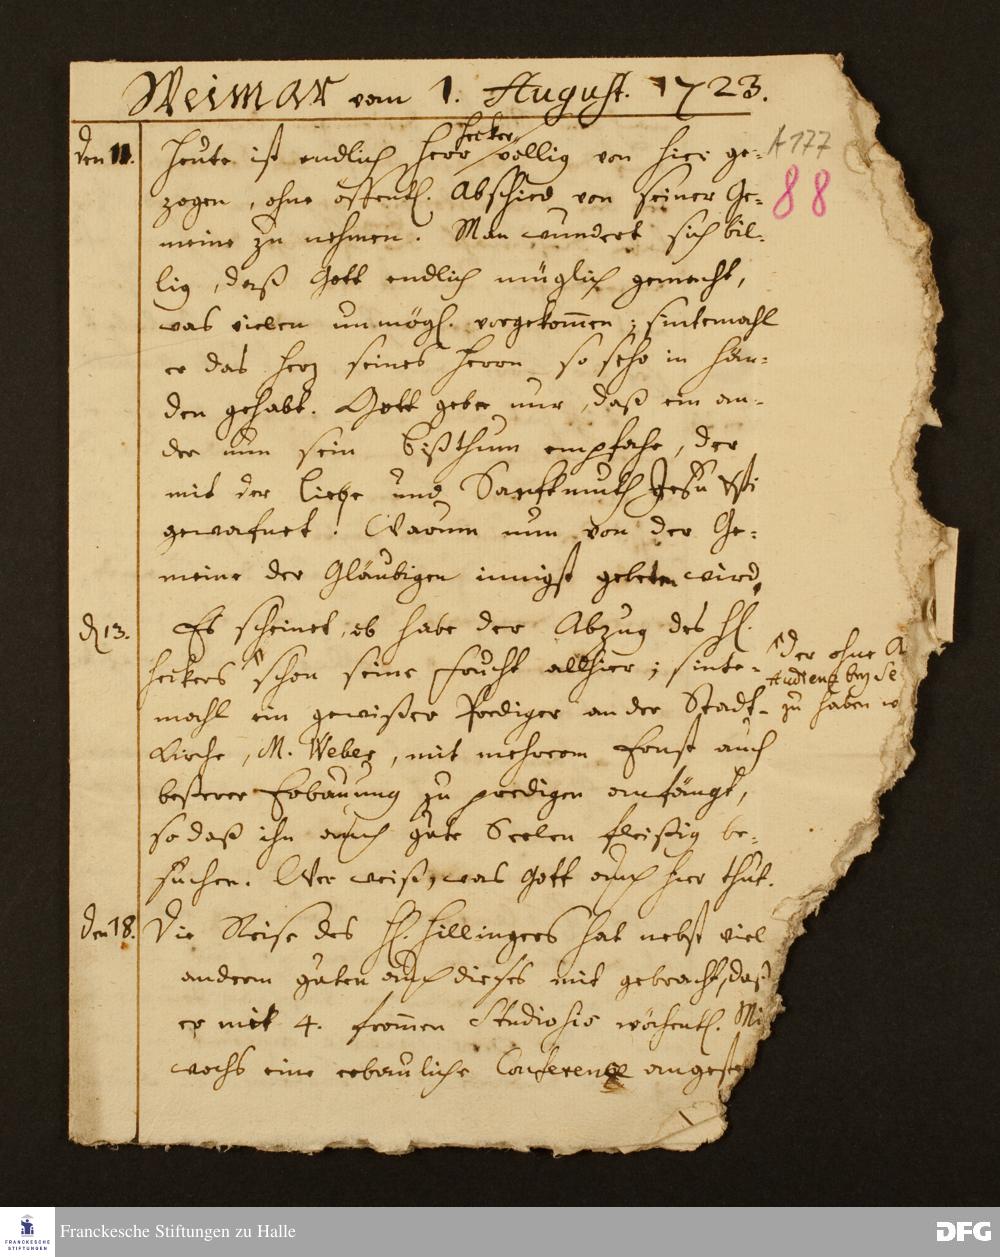 Weimar vom 1. August. 1723.
A 177
88
den 11. Heute ist endlich Herr Hecker völlig von hier ge-
zogen, ohne öffentl. Abschied von seiner Ge-
meine zu nehmen. Man wundert sich bil-
lig, daß Gott endlich müglich gemacht,
was vielen unmögl. vorgekommen; sintemahl
er das Herz seines Herrn so sehr in Hän-
den gehabt. Gott gebe nur, daß ein an-
der nun sein Bißthum empfahe, der
mit der Liebe und Sanftmuth Jesu Xsti
gewafnet! Warum nun von der Ge-
meine der Gläubigen innigst gebeten wird,
d. 13. Es scheinet, ob habe der Abzug des H.
Heckers schon seine Frucht allhier; sinte-
der ohne A
Audienz bey Se
zu haben w
mahl ein gewißer Prediger an der Stadt-
Kirche, M. Weber, mit mehrerem Ernst auch
beßerer Erbauung zu predigen anfängt,
so daß ihn auch gute Seelen fleißig be-
suchen. Wer weiß, was Gott auch hier thut.
den 18. Die Reise des H. Hillingers hat nebst viel
anderm guten auch dieses mit gebracht, daß
er mit 4. frommen Studiosis wöchentl. Mi
wochs eine erbauliche Conferenz angeste
Franckesche Stiftungen
Franckesche Stiftungen zu Halle
DFG